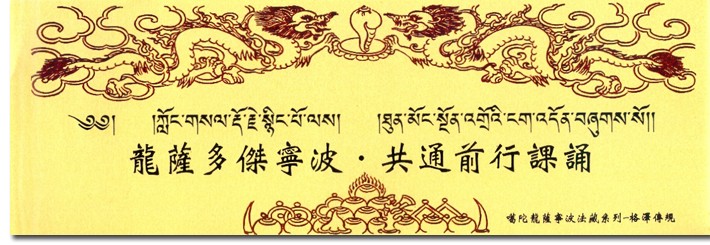 ༄༅། །ཀློང་གསལ་རྡོ་རྗེ་སྙིང་པོ་ལས། །ཐུན་མོང་སྔོན་འགྲོའི་ངག་འདོན་བཞུགས་སོ།།
龍薩多傑寧波·共通前行課誦
噶陀龍薩寧波法藏系列-格澤傳規